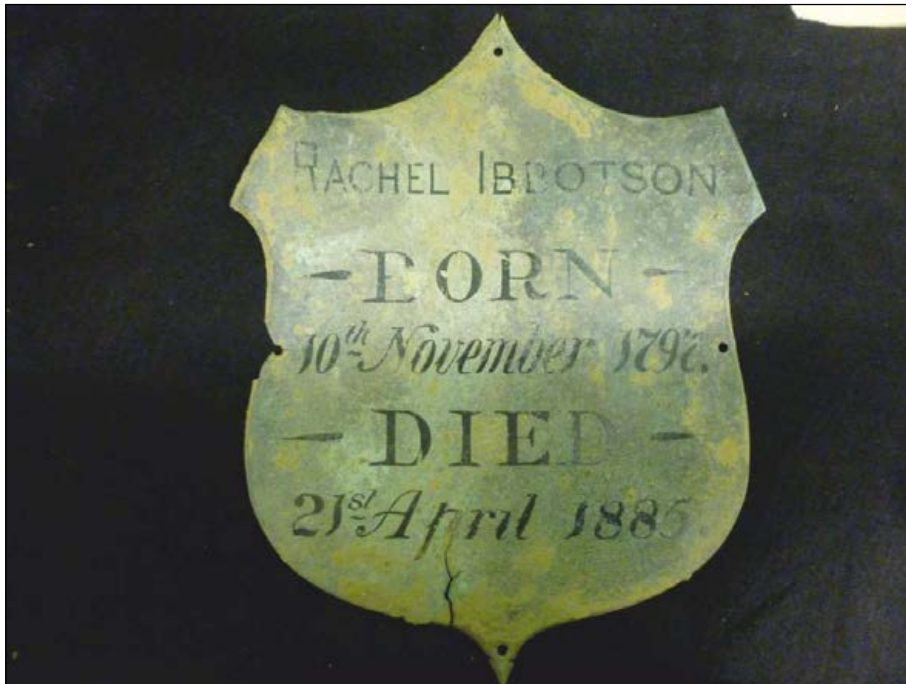 RACHEL IBBOTSON
- BORN -
10th November 1797.
- DIED -
21st April 1885.